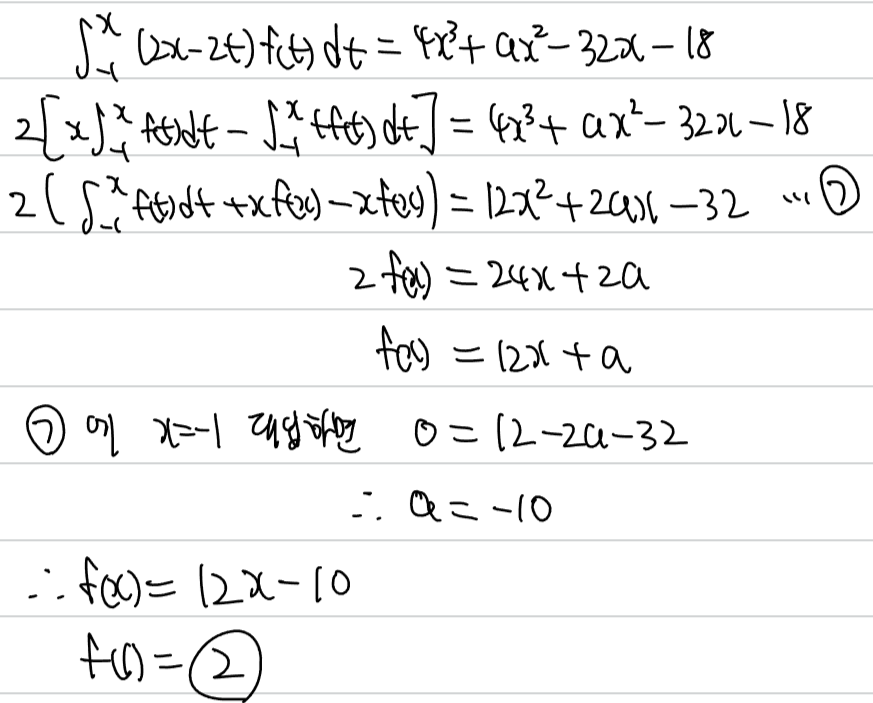 ∫₋₁ˣ (2x-2t)f(t)dt = 4x³+ax²-32x-18
2[x∫₋₁ˣ f(t)dt - ∫₋₁ˣ tf(t)dt] = 4x³+ax²-32x-18
2(∫₋₁ˣ f(t)dt + xf(x) - xf(x)) = 12x²+2ax-32 … ㉠
2f(x) = 24x+2a
f(x) = 12x+a
㉠에 x=-1 대입하면 0 = 12-2a-32
∴ a = -10
∴ f(x) = 12x-10
f(1) = 2